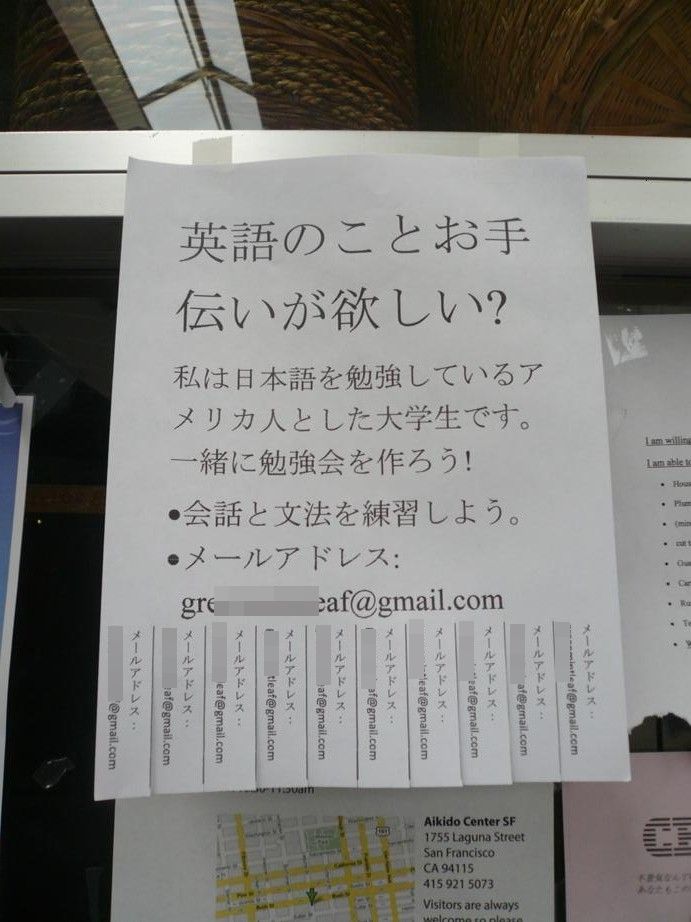 英語のことお手
伝いが欲しい?
私は日本語を勉強しているア
メリカ人とした大学生です。
一緒に勉強会を作ろう!
●会話と文法を練習しよう。
●メールアドレス:
gre eaf@gmail.com
メールアドレス:
@gmail.com
メールアドレス:
eaf@gmail.com
メールアドレス:
leaf@gmail.com
メールアドレス:
tleaf@gmail.com
メールアドレス:
eaf@gmail.com
メールアドレス:
eaf@gmail.com
メールアドレス:
tleaf@gmail.com
メールアドレス:
tleaf@gmail.com
メールアドレス:
eaf@gmail.com
メールアドレス:
tleaf@gmail.com
I am willing
I am able to
Aikido Center SF
1755 Laguna Street
San Francisco
CA 94115
415 921 5073
Visitors are always
welcome